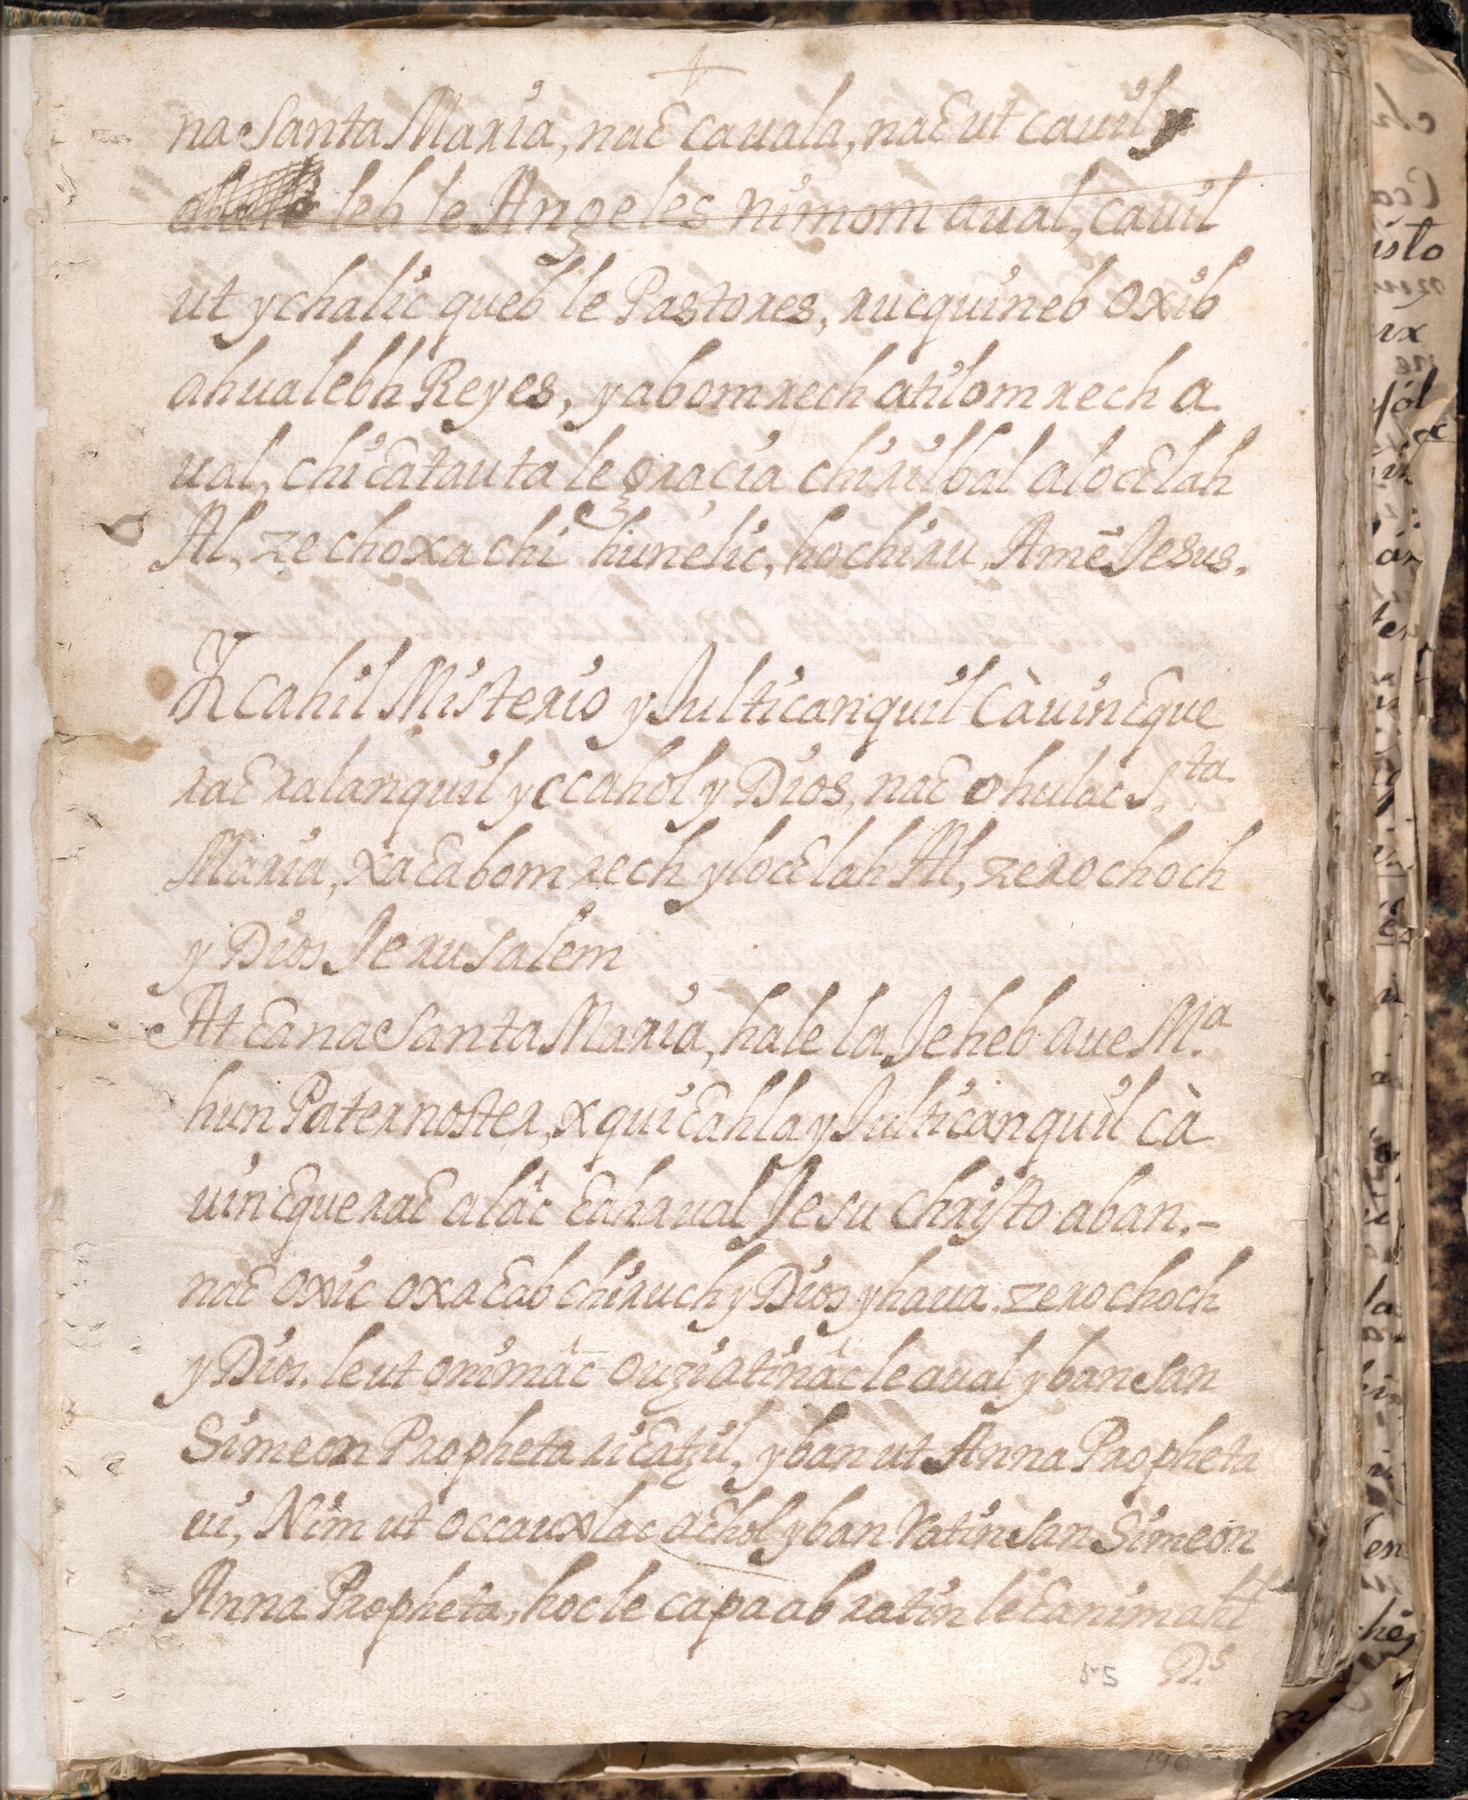 na Santa Maria, naꜫ cauala, naꜫ ut cauil y
leh le Angeles nimom aual, cauil
ut ychalic queb le Pastores, rucquineb oxib
ahualebh Reyes, yabom rech atilom rech a
ual, chi ꜫatauta le gracia chirilbal alocꜫlah
Al, ze choxa chi hunelic, hochiru, Amē Jesus.
R cahil Misterio y Julticanquil Càuinꜫque
raꜫ ralanquil yccahol y Dios, naꜫ ohulac S.ta
Maria, xa ꜫabom rech ylocꜫlah Al, zerochoch
y Dios Jerusalem
At ꜫana Santa Maria, hale la Jeheb aue M.a
hun Paternoster, xqui ꜫahla y Julticanquil cà
uinꜫque raꜫ alâc ꜫahaual Jesu Christo aban.-
naꜫ oxic oxa ꜫab chiruch y Dios yhaua. zerochoch
y Dios. le ut onimâc ouziatinâc le aual yban San
Simeon Propheta riꜫatzil, yban ut Anna Propheta
ui, Nim ut occauxlac aꜫhol yban ratin San Simeon
Anna Propheta, hocle capaab ratin le ꜫanimahl
Ds.
55